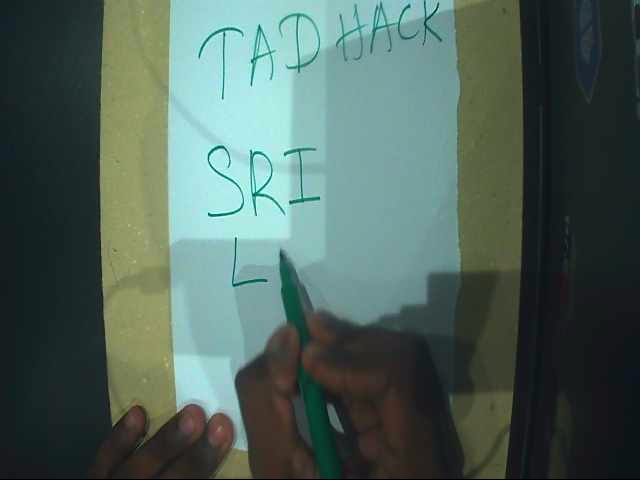 TAD HACK
SRI
L